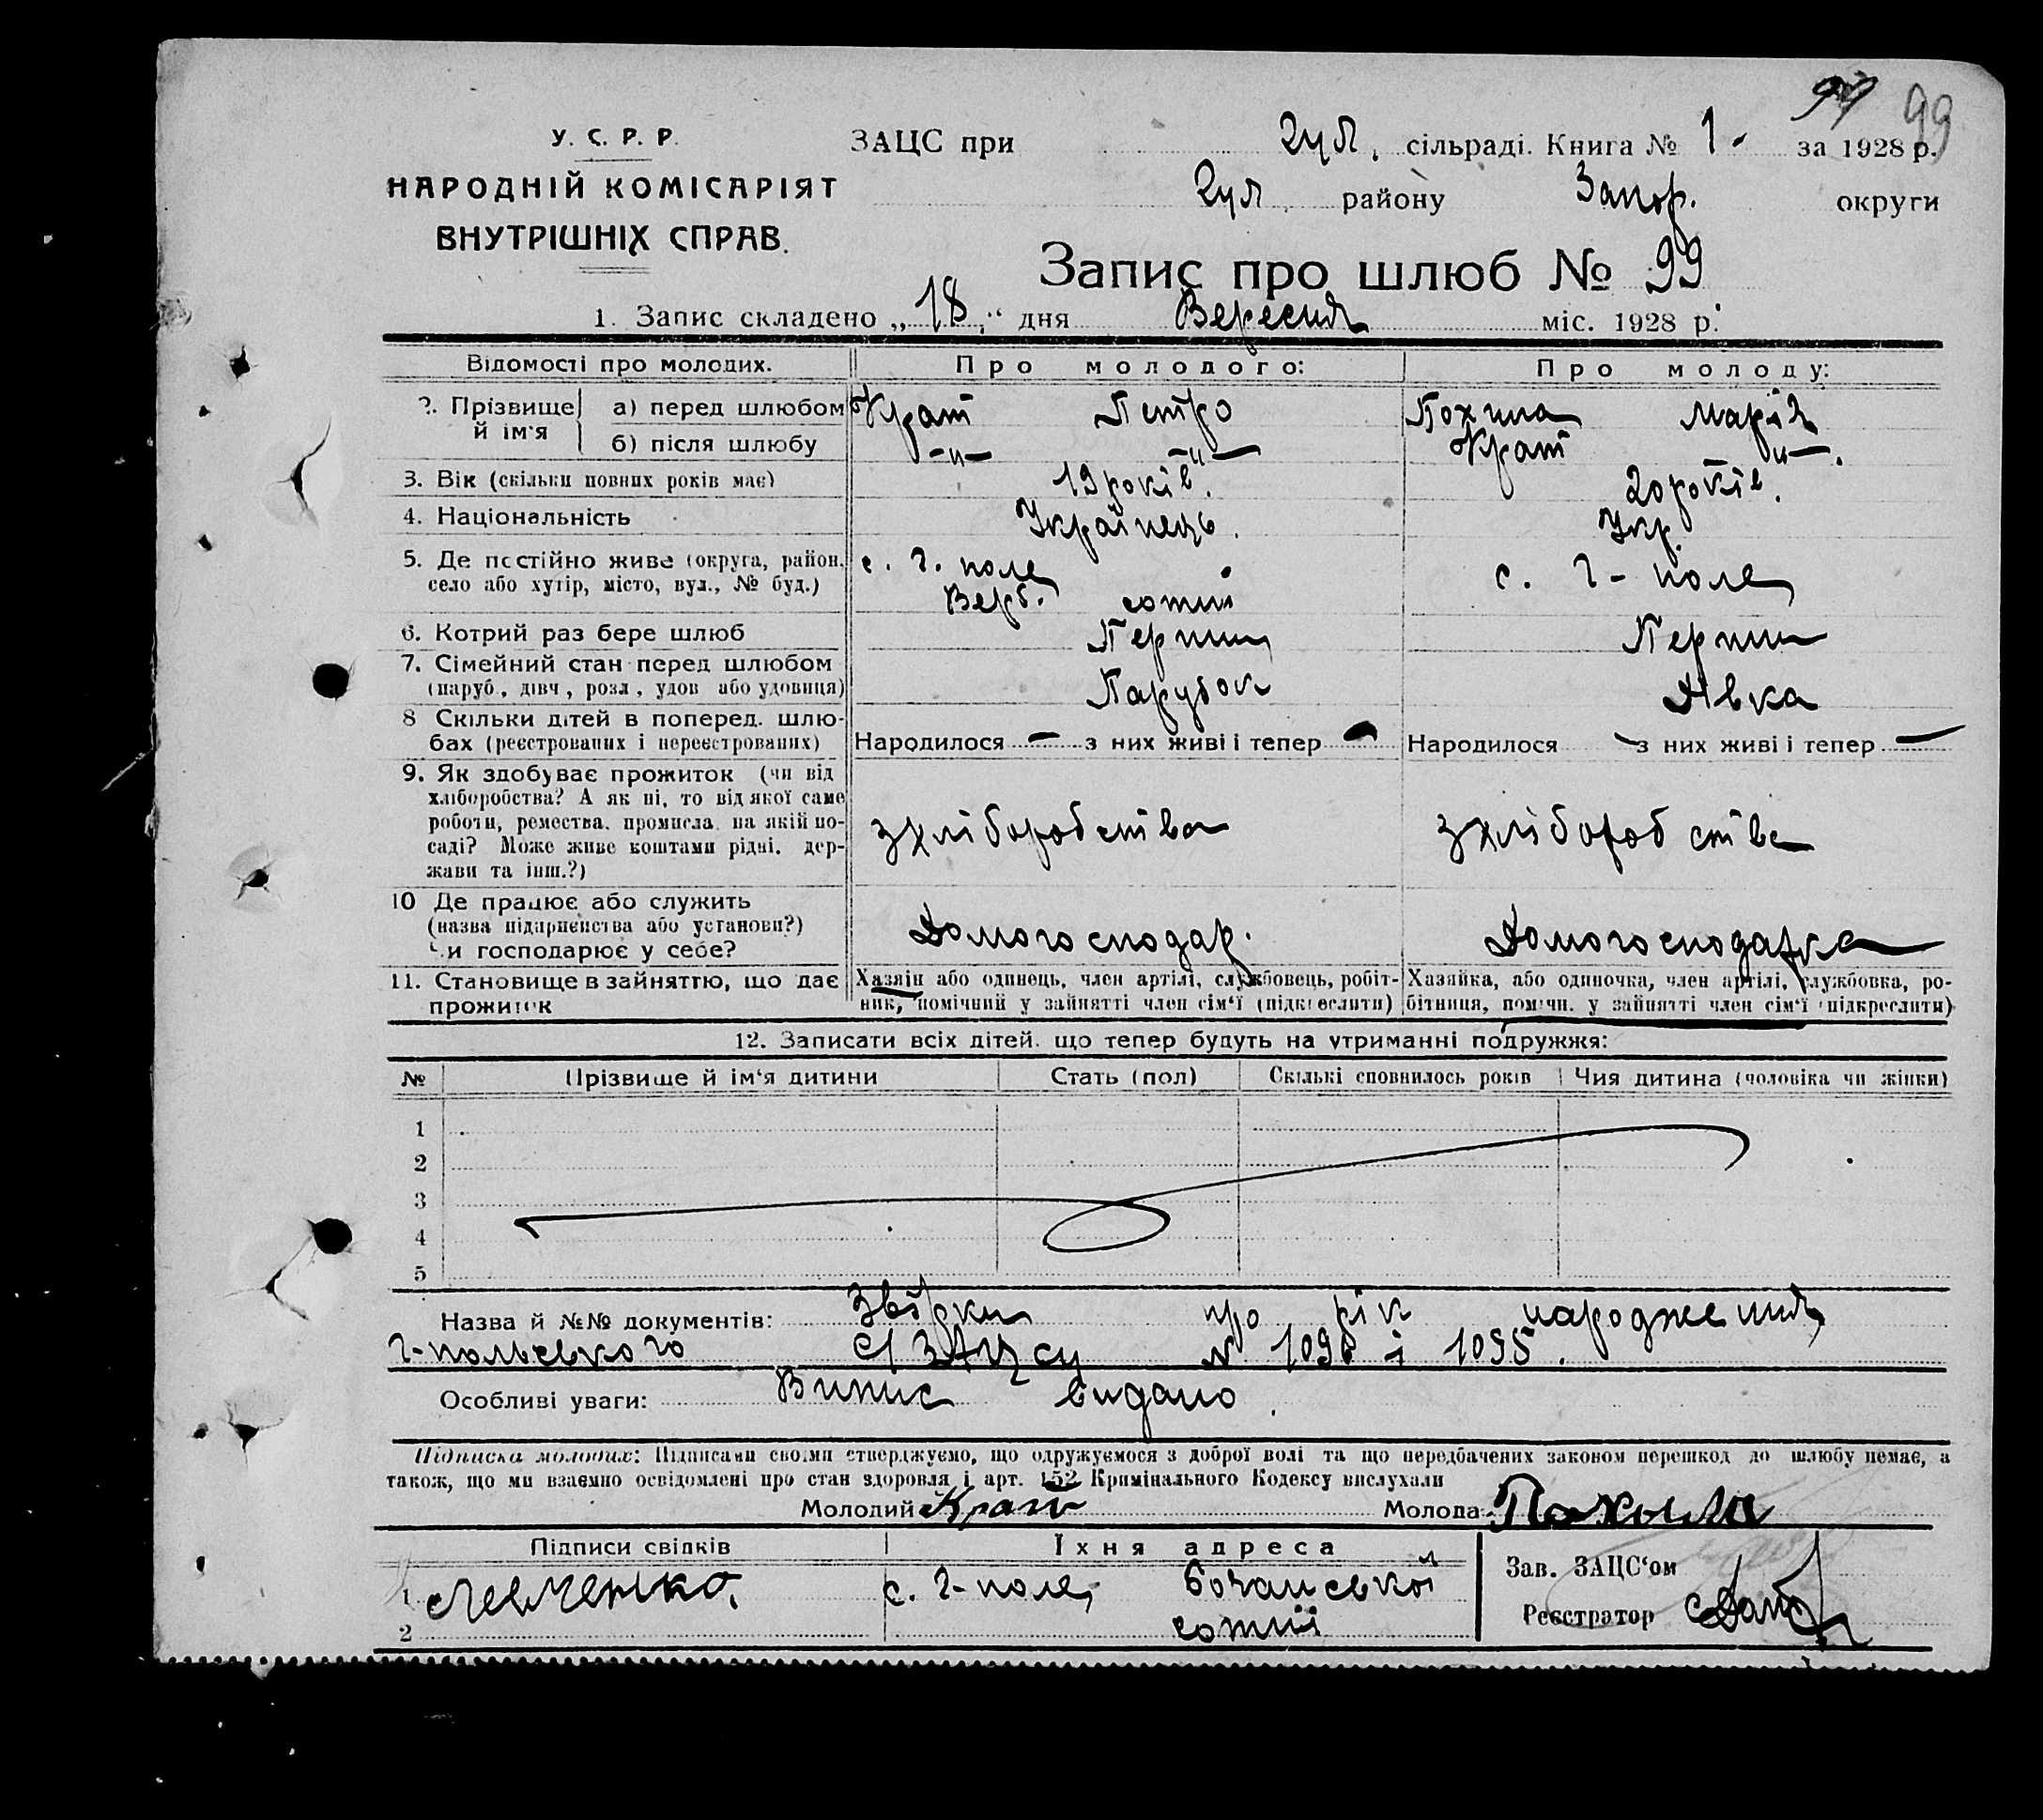 99 99
У. С. Р. Р.
ЗАЦС при Гул. сільраді. Книга № 1- за 1928 р.
НАРОДНІЙ КОМІСАРІЯТ
Гул району Запор. округи
ВНУТРІШНІХ СПРАВ.
Запис про шлюб № 99
1. Запис складено „18" дня Вересня міс. 1928 р.
Відомості про молодих. Про молодого: Про молоду:
2. Прізвище й ім'я а) перед шлюбом Крат Петро Похила Марія
б) після шлюбу -„- -„- Крат -„-.
3. Вік (скільки повних років має) 19 років. 20 років.
4. Національність Українець. Укр.
5. Де постійно живе (округа, район, с. Г. поле с. Г- поле
село або хутір, місто, вул., № буд.) Верб. сотні
6. Котрий раз бере шлюб Перший Перший
7. Сімейний стан перед шлюбом
(паруб., дівч., розл., удов або удовиця) Парубок Дівка
8 Скільки дітей в поперед. шлю-
бах (реєстрованих і нереєстрованих) Народилося — з них живі і тепер — Народилося — з них живі і тепер —
9. Як здобуває прожиток (чи від
хліборобства? А як ні, то від якої саме
роботи, ремества, промисла, на якій по-
саді? Може живе коштами рідні, дер-
жави та інш.?) з хліборобства з хліборобства
10 Де працює або служить
(назва підприємства або установи?)
Чи господарює у себе? Домогосподар. Домогосподарка
11. Становище в зайняттю, що дає
прожиток
Хазяїн або одинець, член артілі, службовець, робіт-
ник, помічний у зайнятті член сім'ї (підкреслити)
Хазяйка, або одиночка, член артілі, службовка, ро-
бітниця, помічн. у зайнятті член сім'ї (підкреслити)
12. Записати всіх дітей, що тепер будуть на утриманні подружжя:
№ Прізвище й ім'я дитини Стать (пол) Скількі сповнилось років Чия дитина (чоловіка чи жінки)
1
2
3
4
5
Назва й №№ документів: Звірки про рік народження
Г-польського ЗАЦСу № 1096 і 1095.
Особливі уваги: Випис видано.
Підписка молодих: Підписами своїми стверджуємо, що одружуємося з доброї волі та що передбачених законом перешкод до шлюбу немає, а
також, що ми взаємно освідомлені про стан здоровля і арт. 152 Кримінального Кодексу вислухали
Молодий Крат Молода: Похила
Підписи свідків Їхня адреса
Зав. ЗАЦС'ом
1 Левченко. с. Г-поле, Бочанської
сотні
Реєстратор
2